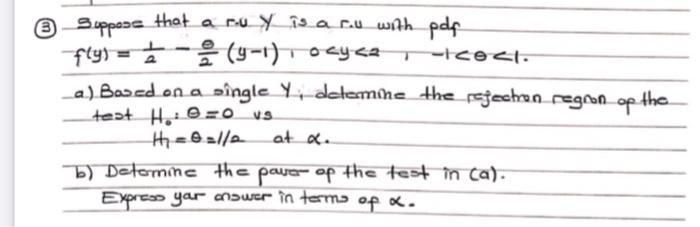 ③ Suppose that a r.v Y is a r.v with pdf
f(y) = 1/2 - θ/2 (y-1), 0<y<2, -1<θ<1.
a) Based on a single Y, determine the rejection region of the
test H₀: θ=0 vs
H₁ = θ=1/2 at α.
b) Detomine the power of the test in (a).
Express yar answer in terms of α.